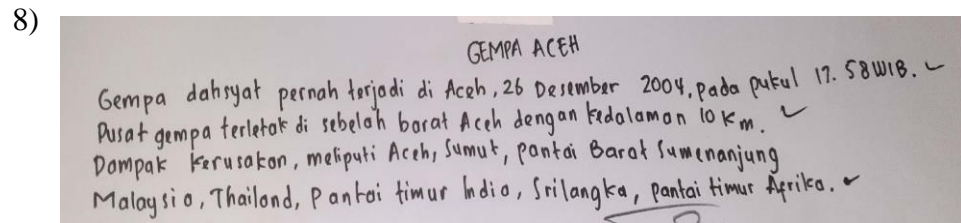 8)
GEMPA ACEH
Gempa dahsyat pernah terjadi di Aceh, 26 Desember 2004, pada pukul 17.58 WIB.
Pusat gempa terletak di sebelah barat Aceh dengan kedalaman 10 Km.
Dampak kerusakan, meliputi Aceh, Sumut, pantai Barat Sumenanjung
Malaysia, Thailand, Pantai timur India, Srilangka, pantai timur Afrika.